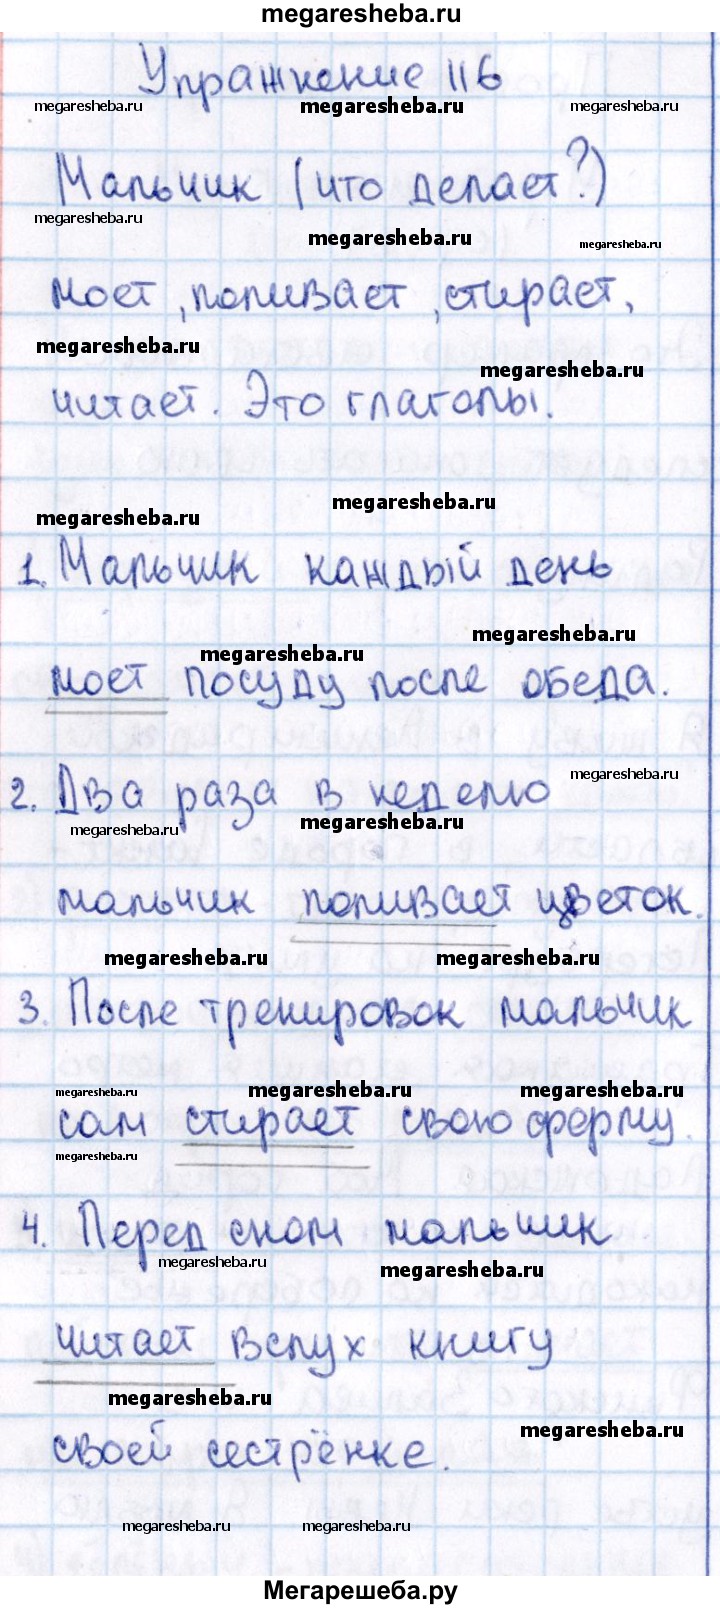 megaresheba.ru
Упражнение 116
megaresheba.ru megaresheba.ru megaresheba.ru
Мальчик (что делает?)
megaresheba.ru megaresheba.ru megaresheba.ru
моет, поливает, стирает,
megaresheba.ru megaresheba.ru
читает. Это глаголы.
megaresheba.ru megaresheba.ru
1. Мальчик каждый день
megaresheba.ru megaresheba.ru
моет посуду после обеда.
megaresheba.ru
2. Два раза в неделю
megaresheba.ru megaresheba.ru
мальчик поливает цветок.
megaresheba.ru megaresheba.ru
3. После тренировок мальчик
megaresheba.ru megaresheba.ru megaresheba.ru
сам стирает свою форму.
megaresheba.ru
4. Перед сном мальчик
megaresheba.ru megaresheba.ru
читает вслух книгу
megaresheba.ru megaresheba.ru
своей сестрёнке.
megaresheba.ru megaresheba.ru
Мегарешеба.ру